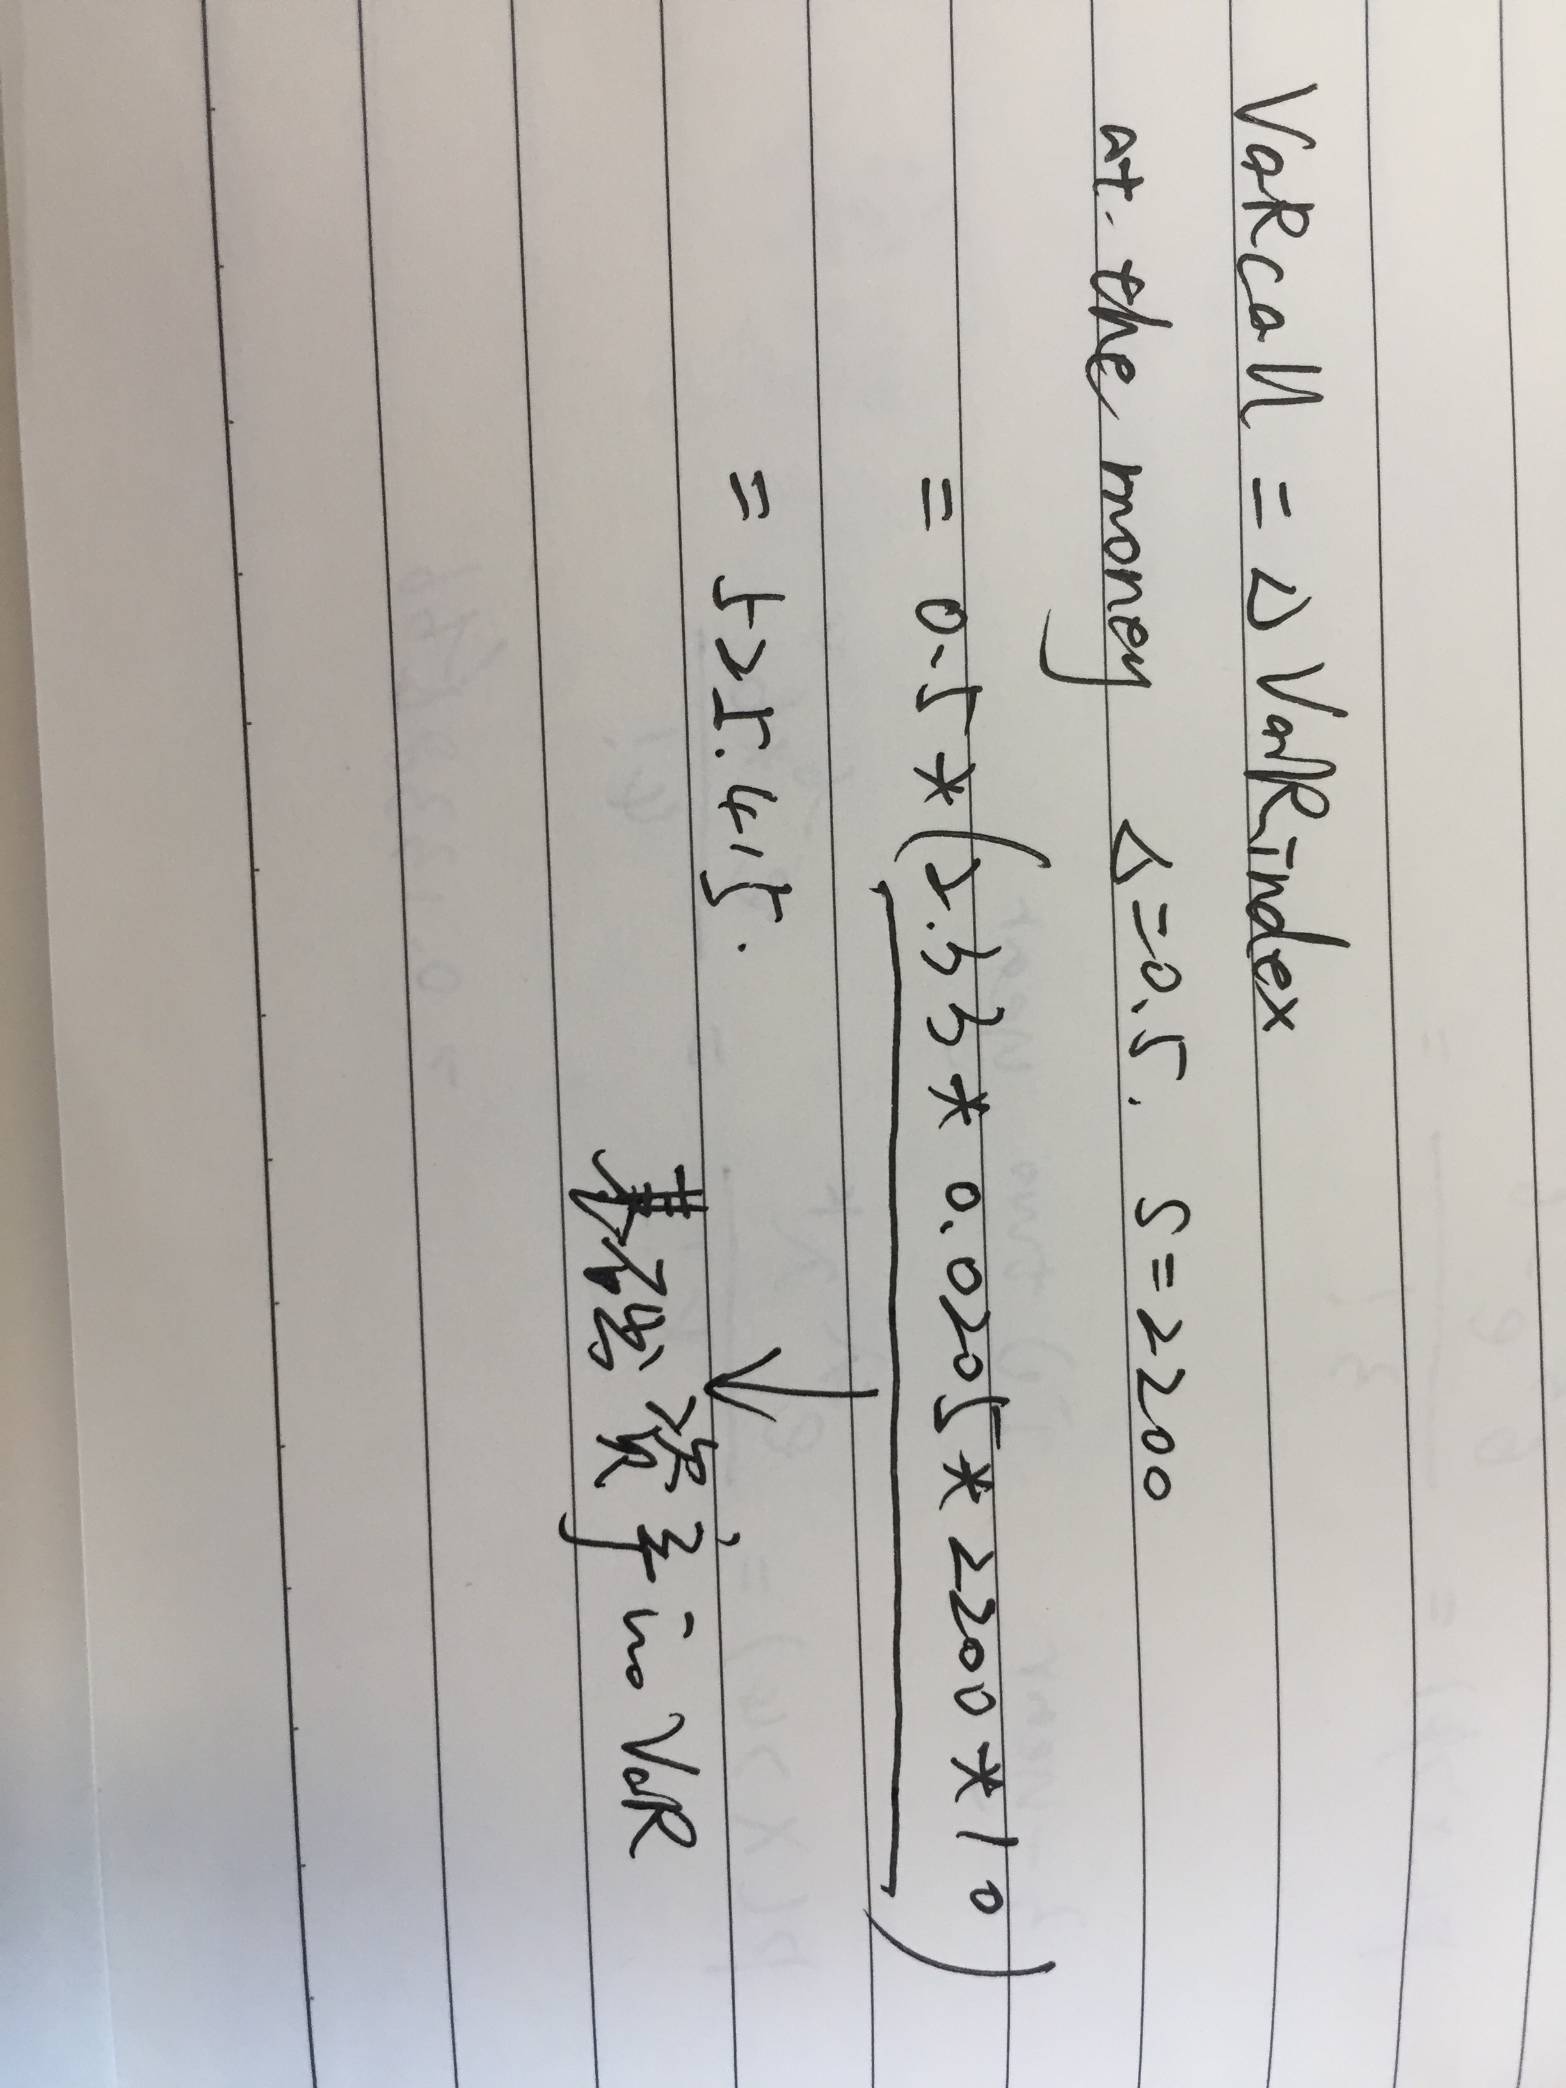 VaRcall = Δ VaRindex
at. the money Δ=0.5. S=2200
= 0.5*(2.33* 0.0205*2200*10)
= 525.415.
基础资产 in VaR